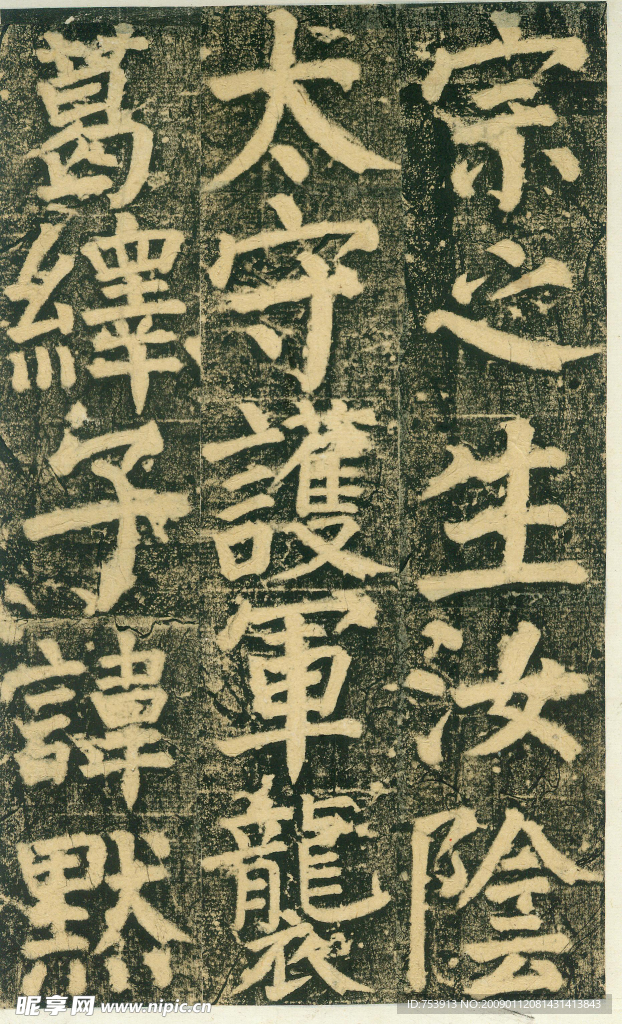 宗之生汝陰
太守護軍襲
葛繹子諱默
昵享网 www.nipic.cn
ID:753913 NO:20090112081431413843